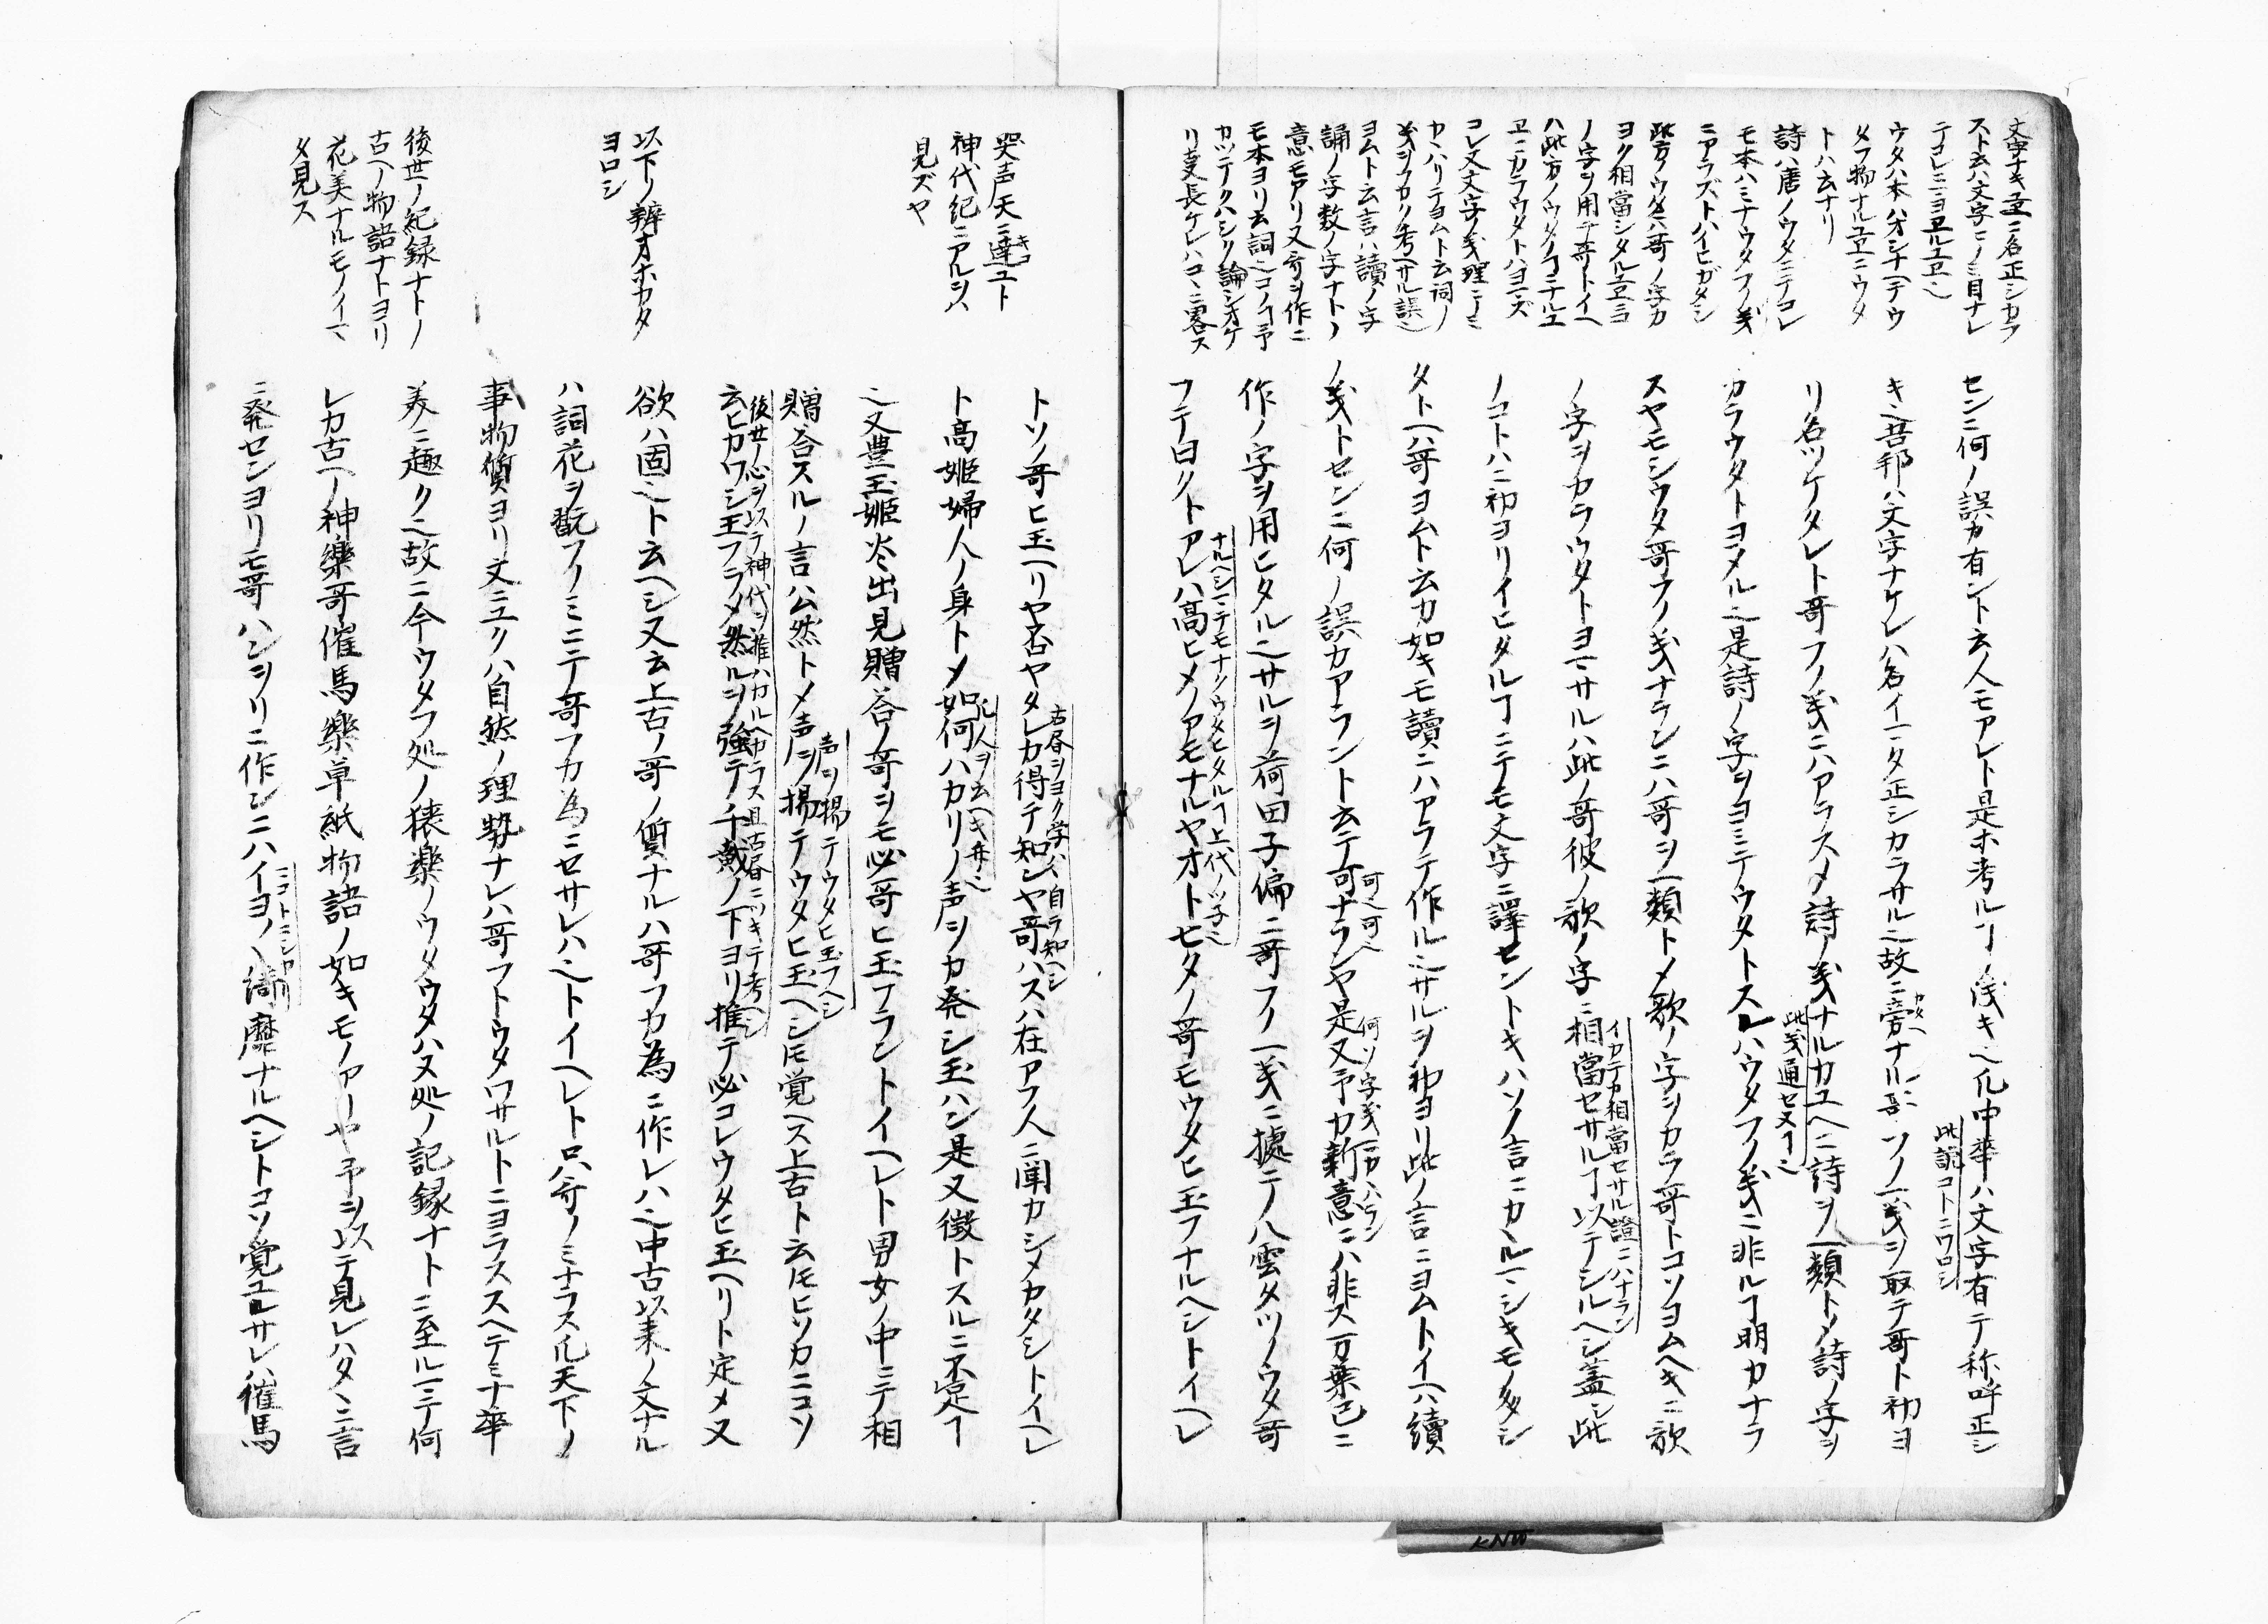 文字ナキ故ニ名正シカラ
スト云ハ文字ニノミ目ナレ
テコレニヨルユヱ也
ウタハ本ハオシナヘテウ
タフ物ナルユヱニウタ
トハ云ナリ
詩ハ唐ノウタニテコレ
モ本ハミナウタフノ義
ニアラズトハイヒガタシ
此方ノウタハ哥ノ字カ
ヨク相當シタルユヱニヨ
ノ字ヲ用テ哥トイヘ
ハ此方ノウタノヿニナルユ
ヱニカラウタトハヨマズ
コレ又文字ノ義理ニノミ
カヽハリテヨムト云詞ノ
義ヲフカク考ヘサル誤也
ヨムト云言ハ讀ノ字
誦ノ字数ノ字ナトノ
意モアリ又哥ヲ作ニ
モ本ヨリ云詞也コノヿ予
カツテクハシク論シオケ
リ支長ケレハコヽニ畧ス
センニ何ノ誤カ有ント云人モアレト是ホ考ルヿノ浅キ也凡中華ハ文字有テ称呼正シ
此説コトニワロシ
キ也吾邦ハ文字ナケレハ名イマタ正シカラサル也故ニ旁ナルニ哥ソノ一義ヲ取テ哥ト初ヨ
リ名ツケタレト哥フノ義ニハアラスメ詩ノ義ナルカユヘニ詩ヲ一類トメ詩ノ字ヲ
此義通セヌヿ也
カラウタトヨメル也是詩ノ字ヲヨミテウタトスレハウタフノ義ニ非ルヿ明カナラ
スヤモシウタ哥フノ義ナランニハ哥ヲ一類トメ歌ノ字ヲカラ哥トコソヨムヘキニ歌
ノ字ヲカラウタトヨマサルハ此ノ哥彼ノ歌ノ字ニ相當セサルヿ以テシルヘシ蓋シ此
イカテカ相當セサル證ニハナラン
ノコトハニ初ヨリイヒタルヿニテモ文字ニ譯セントキハソノ言ニカヽルマシキモノタシ
タトヘハ哥ヨムト云カ如キモ讀ニハアラテ作ル也サルヲ初ヨリ此ノ言ニヨムトイヘハ讀
ノ義トセンニ何ノ誤カアラント云テ可ナランヤ是又予カ新意ニハ非ス万葉已ニ
可也可也
何ソ字義一カハラン
作ノ字ヲ用ヒタル也サルヲ荷田子偏ニ哥フノ一義ニ據テ八雲タツノウタ哥
フテ曰クトアレハ高ヒメノアモナルヤオトヒタノ哥モウタヒ玉フナルヘシトイヘレ
ナルヘシマテモナクウタヒタルヿ上代ノツ子也
哭声天ニ達ユト
神代紀ニアルヲハ
見ズヤ
以下ノ辨オホカタ
ヨロシ
後世ノ紀録ナトノ
古ヘノ物語ナトヨリ
花美ナルモノイマ
タ見ス
トソノ哥ヒ玉ヘリヤ否ヤタレカ得テ知ンヤ哥ハスハ在アフ人ニ聞カシメカタシトイヘレ
古昏ヲヨク学ハヽ自ラ知ヘシ
ト高姫婦人ノ身トメ如何ハカリノ声ヲカ発シ玉ハン是又徴トスルニ不足ヿ
凡人ヲ云ヘキ弁也
也又豊玉姫火々出見贈答ノ哥ヲモ必哥ヒ玉フラントイヘレト男女ノ中ニテ相
贈答スルノ言ハ公然トメ声ヲ揚テウタヒ玉ヘシ𪜈覚ヘス上古ト云𪜈ヒソカニコソ
声ヲ揚テウタヒ玉フヘシ
云ヒカワシ玉フラメ然ルヲ強テ千載ノ下ヨリ推テ必コレウタヒ玉ヘリト定メ又
後世ノ心ヲ以テ神代ヲ推ハカルヘカラス且古昏ニツキテ考ヘシ
欲ハ固也ト云ヘシ又云上古ノ哥ノ質ナルハ哥フカ為ニ作レハ也中古以来ノ文ナル
ハ詞花ヲ翫フノミニテ哥フカ為ニセサレハ也トイヘレト只哥ノミナラス凡天下ノ
事物質ヨリ文ニユクハ自然ノ理勢ナレハ哥フトウタワサルトニヨラススヘテミナ華
美ニ趣ク也故ニ今ウタフ処ノ猿樂ノウタウタハヌ処ノ記録ナトニ至ルマテ何
レカ古ヘノ神樂哥催馬樂草紙物語ノ如キモノアリヤ予ヲ以テ見レハタヽニ言
ニ発センヨリモ哥ハンヲリニ作ンニハイヨ〳〵靡ナルヘシトコソ覚ユレサレハ催馬
コトニシカリ